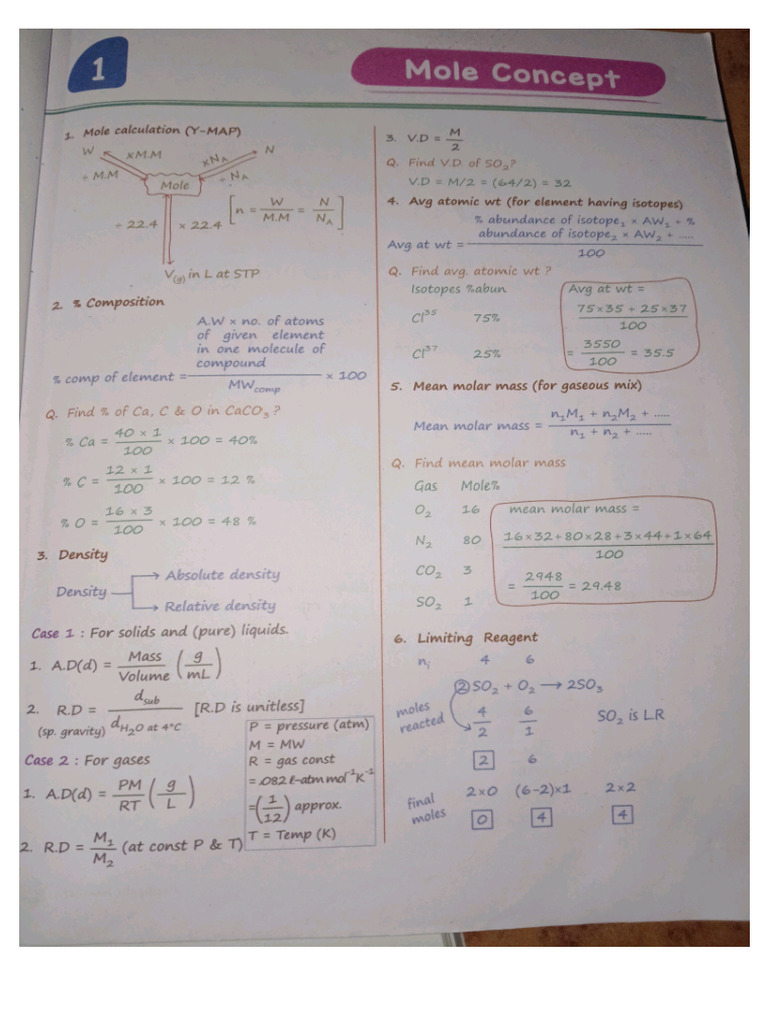 1
Mole Concept
1. Mole calculation (Y-MAP)
W
×M.M
÷ M.M
×N_A
N
÷ N_A
Mole
[n = W/M.M = N/N_A]
÷ 22.4
× 22.4
V_(g) in L at STP
2. % Composition
% comp of element = (A.W × no. of atoms
of given element
in one molecule of
compound / MW_comp) × 100
Q. Find % of Ca, C & O in CaCO₃ ?
% Ca = (40 × 1)/100 × 100 = 40%
% C = (12 × 1)/100 × 100 = 12 %
% O = (16 × 3)/100 × 100 = 48 %
3. Density
Density
Absolute density
Relative density
Case 1 : For solids and (pure) liquids.
1. A.D(d) = Mass/Volume (g/mL)
2. R.D = d_sub/d_H₂O at 4°C [R.D is unitless]
(sp. gravity)
Case 2 : For gases
1. A.D(d) = PM/RT (g/L)
2. R.D = M₁/M₂ (at const P & T)
P = pressure (atm)
M = MW
R = gas const
= .082 ℓ-atm mol⁻¹K⁻¹
= (1/12) approx.
T = Temp (K)
3. V.D = M/2
Q. Find V.D. of SO₂?
V.D = M/2 = (64/2) = 32
4. Avg atomic wt (for element having isotopes)
Avg at wt = (% abundance of isotope₁ × AW₁ + %
abundance of isotope₂ × AW₂ + .....)/100
Q. Find avg. atomic wt ?
Isotopes %abun
Cl³⁵ 75%
Cl³⁷ 25%
Avg at wt =
(75×35 + 25×37)/100
= 3550/100 = 35.5
5. Mean molar mass (for gaseous mix)
Mean molar mass = (n₁M₁ + n₂M₂ + .....)/(n₁ + n₂ + .....)
Q. Find mean molar mass
Gas Mole%
O₂ 16
N₂ 80
CO₂ 3
SO₂ 1
mean molar mass =
(16×32+80×28+3×44+1×64)/100
= 2948/100 = 29.48
6. Limiting Reagent
nᵢ 4 6
②SO₂ + O₂ → 2SO₃
moles
reacted
4/2 6/1 SO₂ is L.R
2 6
2×0 (6–2)×1 2×2
final
moles
0 4 4